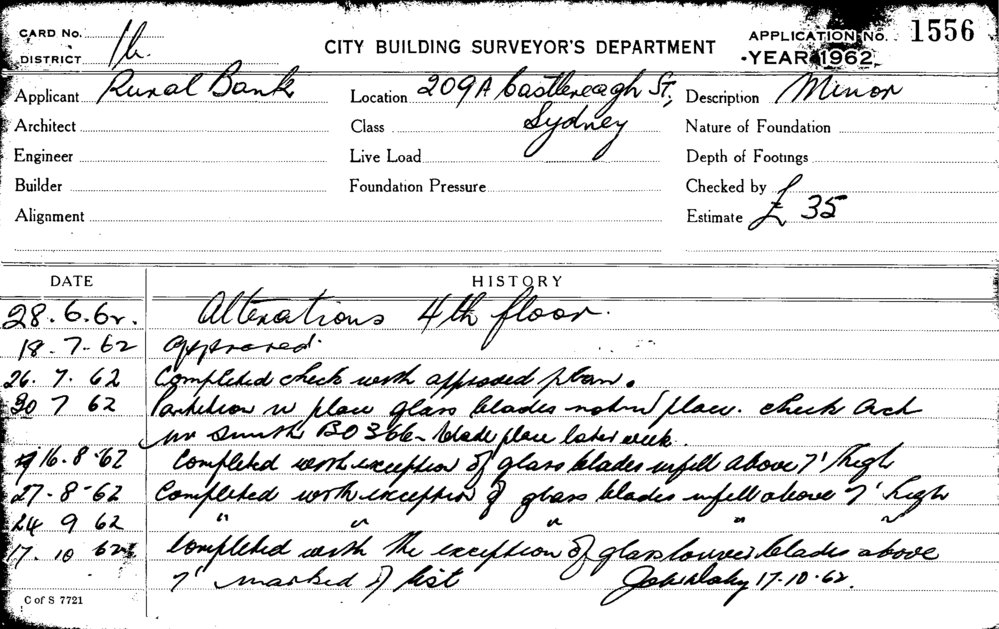 CARD No.
DISTRICT 1b.
CITY BUILDING SURVEYOR'S DEPARTMENT
APPLICATION No. 1556
YEAR 1962
Applicant Rural Bank
Location 209A Castlereagh St,
Sydney
Description Minor
Architect
Class
Nature of Foundation
Engineer
Live Load
Depth of Footings
Builder
Foundation Pressure
Checked by
Alignment
Estimate £ 35
DATE HISTORY
28.6.62. Alterations 4th floor.
18.7.62 approved.
26.7.62 Completed check with approved plan.
30 7 62 Partition in place glass blades not in place. check Arch
Mr Smith B0366 - blade place later week.
16.8.62 Completed with exception of glass blades infill above 7' high
27.8.62 Completed with exception of glass blades infill above 7' high
24 9 62 " " " " "
17.10.62 Completed with the exception of glass louvre blades above
7' marked of list 17.10.62.
C of S 7721